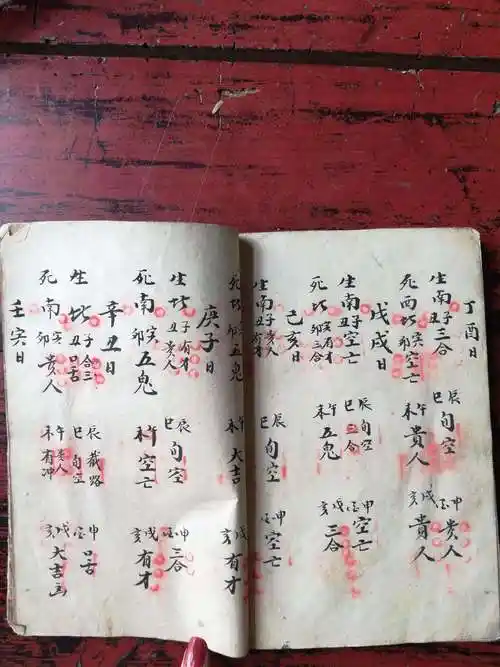 丁酉日
生南子丑三合 辰巳旬空 申酉貴人
死西北寅卯空亡 午未貴人 戌亥貴人
戊戌日
生南子丑空亡 辰巳三合 申酉空亡
死北寅有才卯三合 午未五鬼 戌亥三合
己亥日
生南丑有才 巳旬空 申酉空亡
死北卯五鬼 午未大吉 戌亥有才
庚子日
生北子有才丑貴人 辰巳旬空 申酉三合
死南寅卯五鬼 午未空亡 戌亥有才
辛丑日
生北子合三丑口舌 辰截路巳旬空 申酉口舌
死南寅卯貴人 午貴人未有冲 戌亥大吉
壬寅日